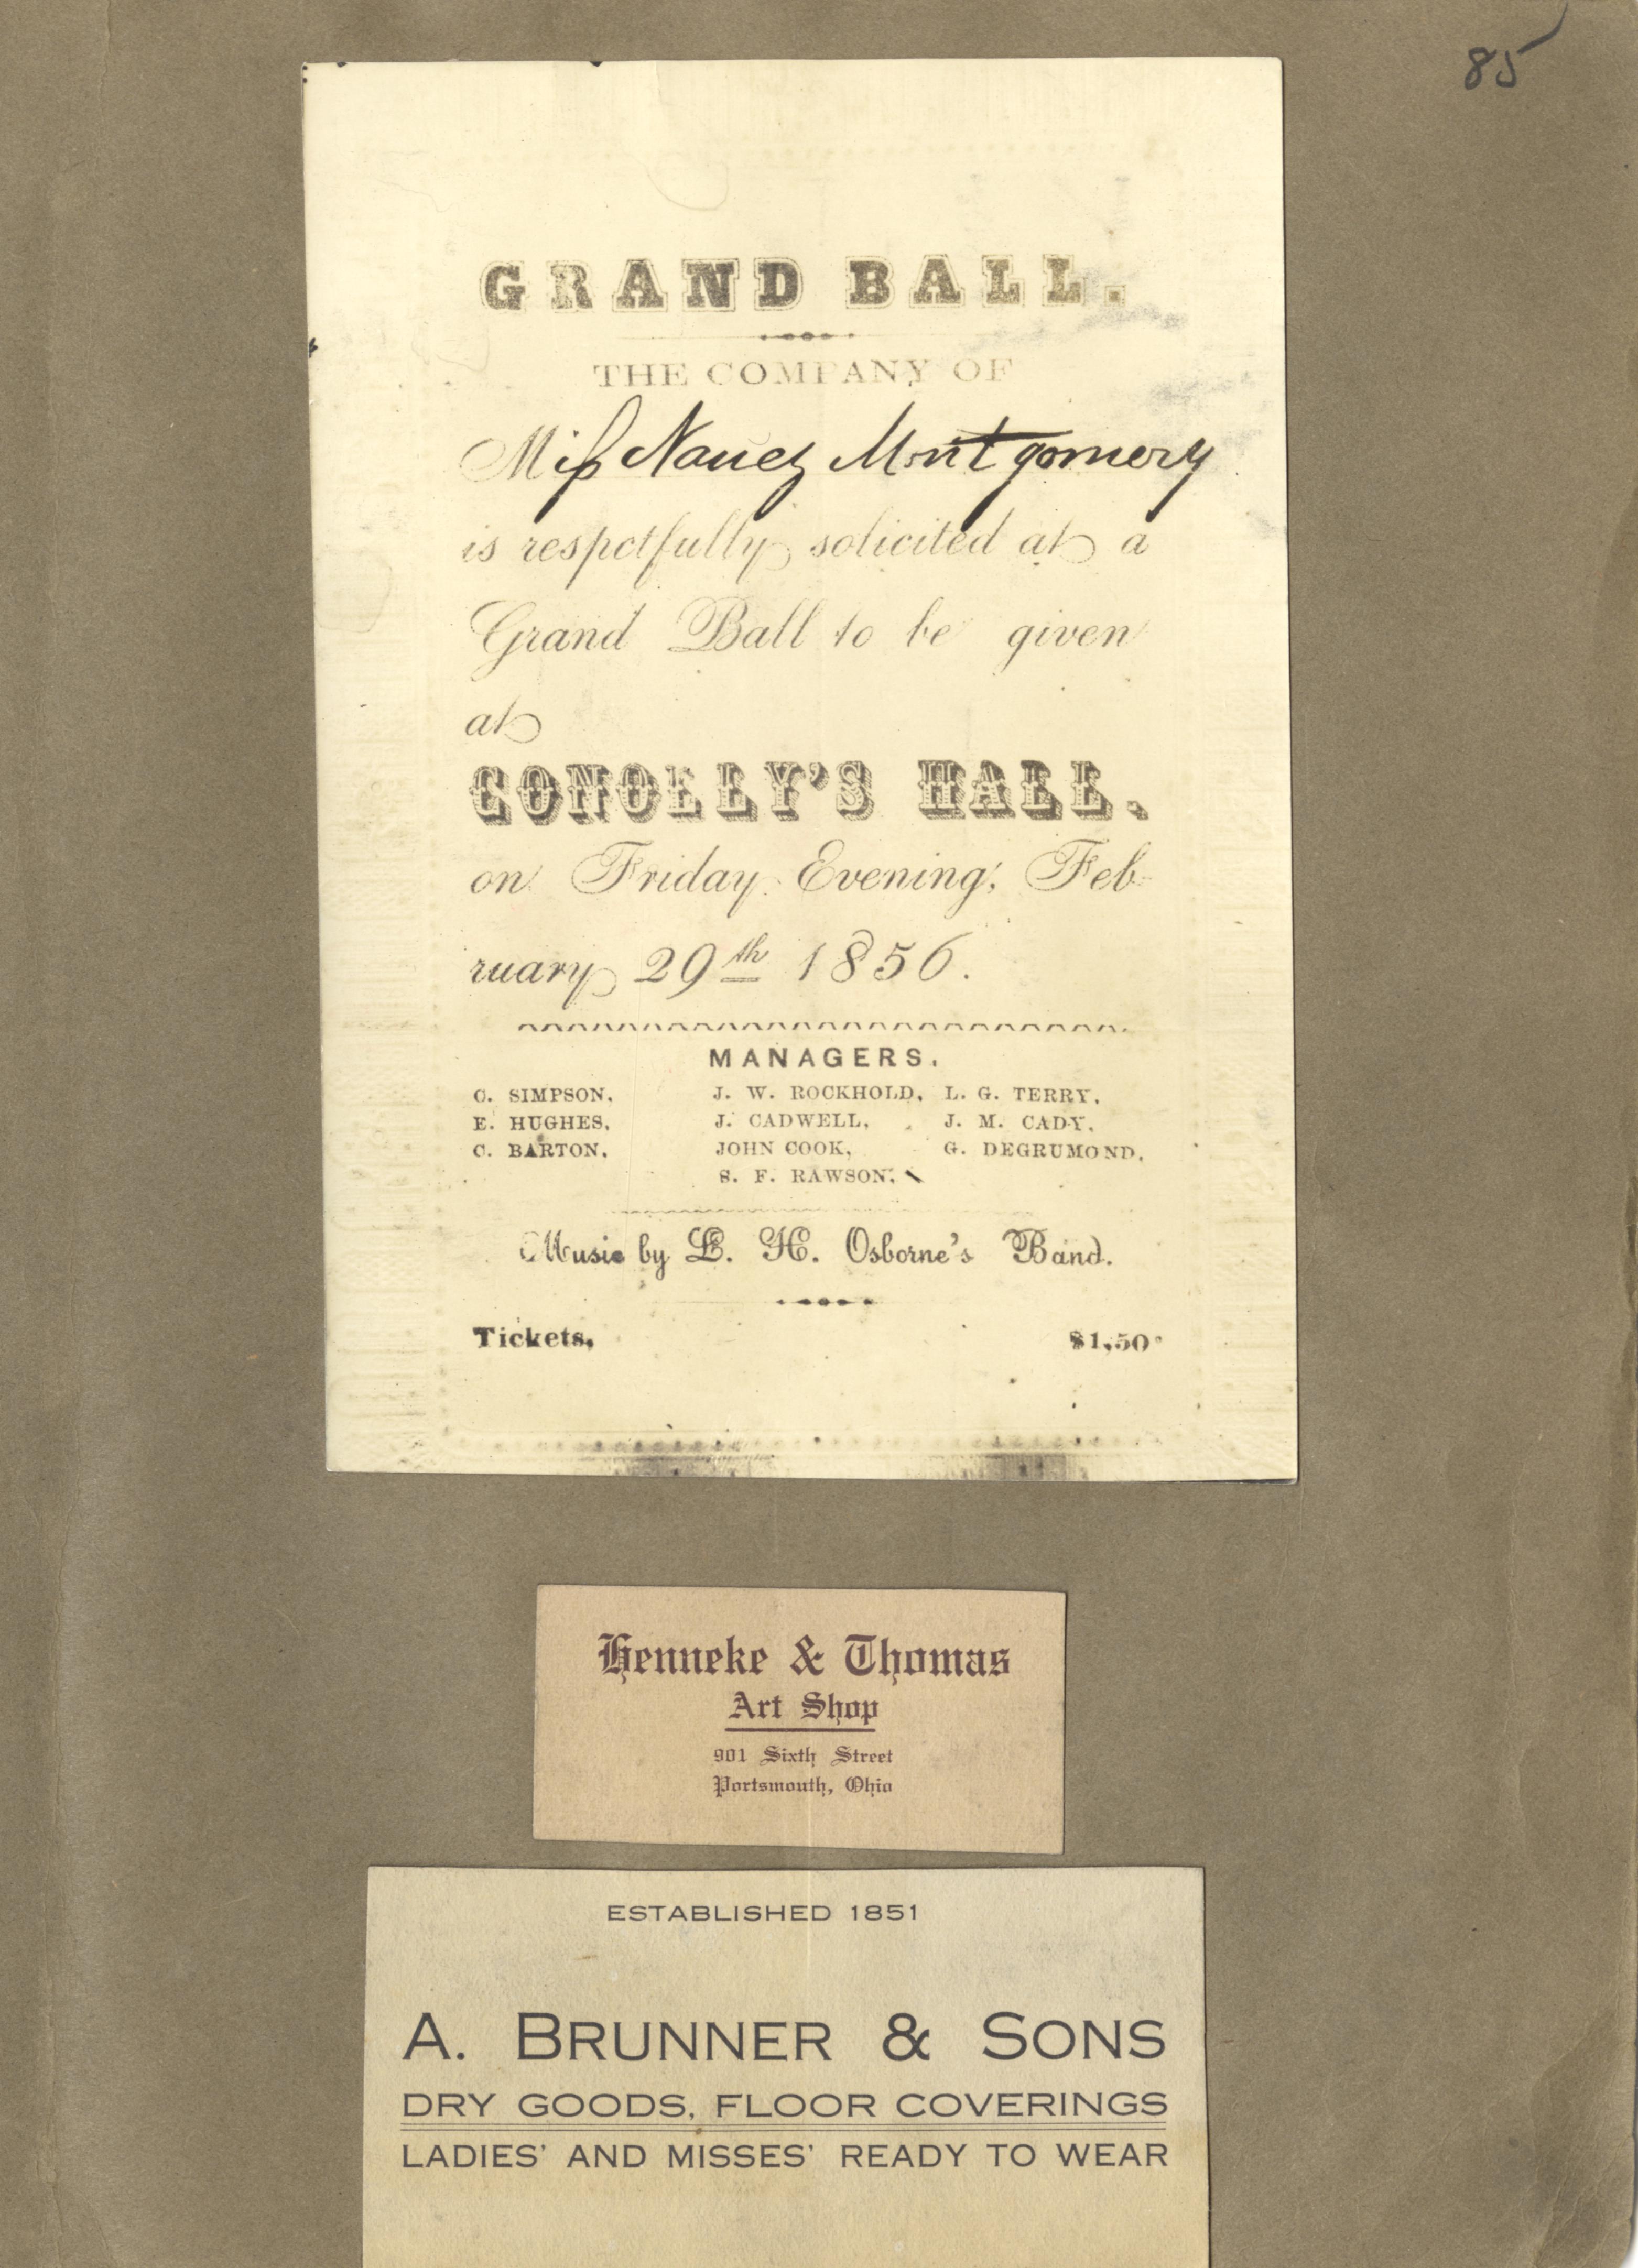 85
GRAND BALL.
THE COMPANY OF
Miss Nancy Montgomery
is respctfully solicited at a
Grand Ball to be given
at
CONOLLY'S HALL.
on Friday Evening, Feb-
ruary 29th 1856.
MANAGERS.
C. SIMPSON, J. W. ROCKHOLD, L. G. TERRY,
E. HUGHES, J. CADWELL, J. M. CADY,
C. BARTON, JOHN COOK, G. DEGRUMOND,
S. F. RAWSON,
Music by L. H. Osborne's Band.
Tickets, $1,50
Henneke & Thomas
Art Shop
901 Sixth Street
Portsmouth, Ohio
ESTABLISHED 1851
A. BRUNNER & SONS
DRY GOODS, FLOOR COVERINGS
LADIES' AND MISSES' READY TO WEAR